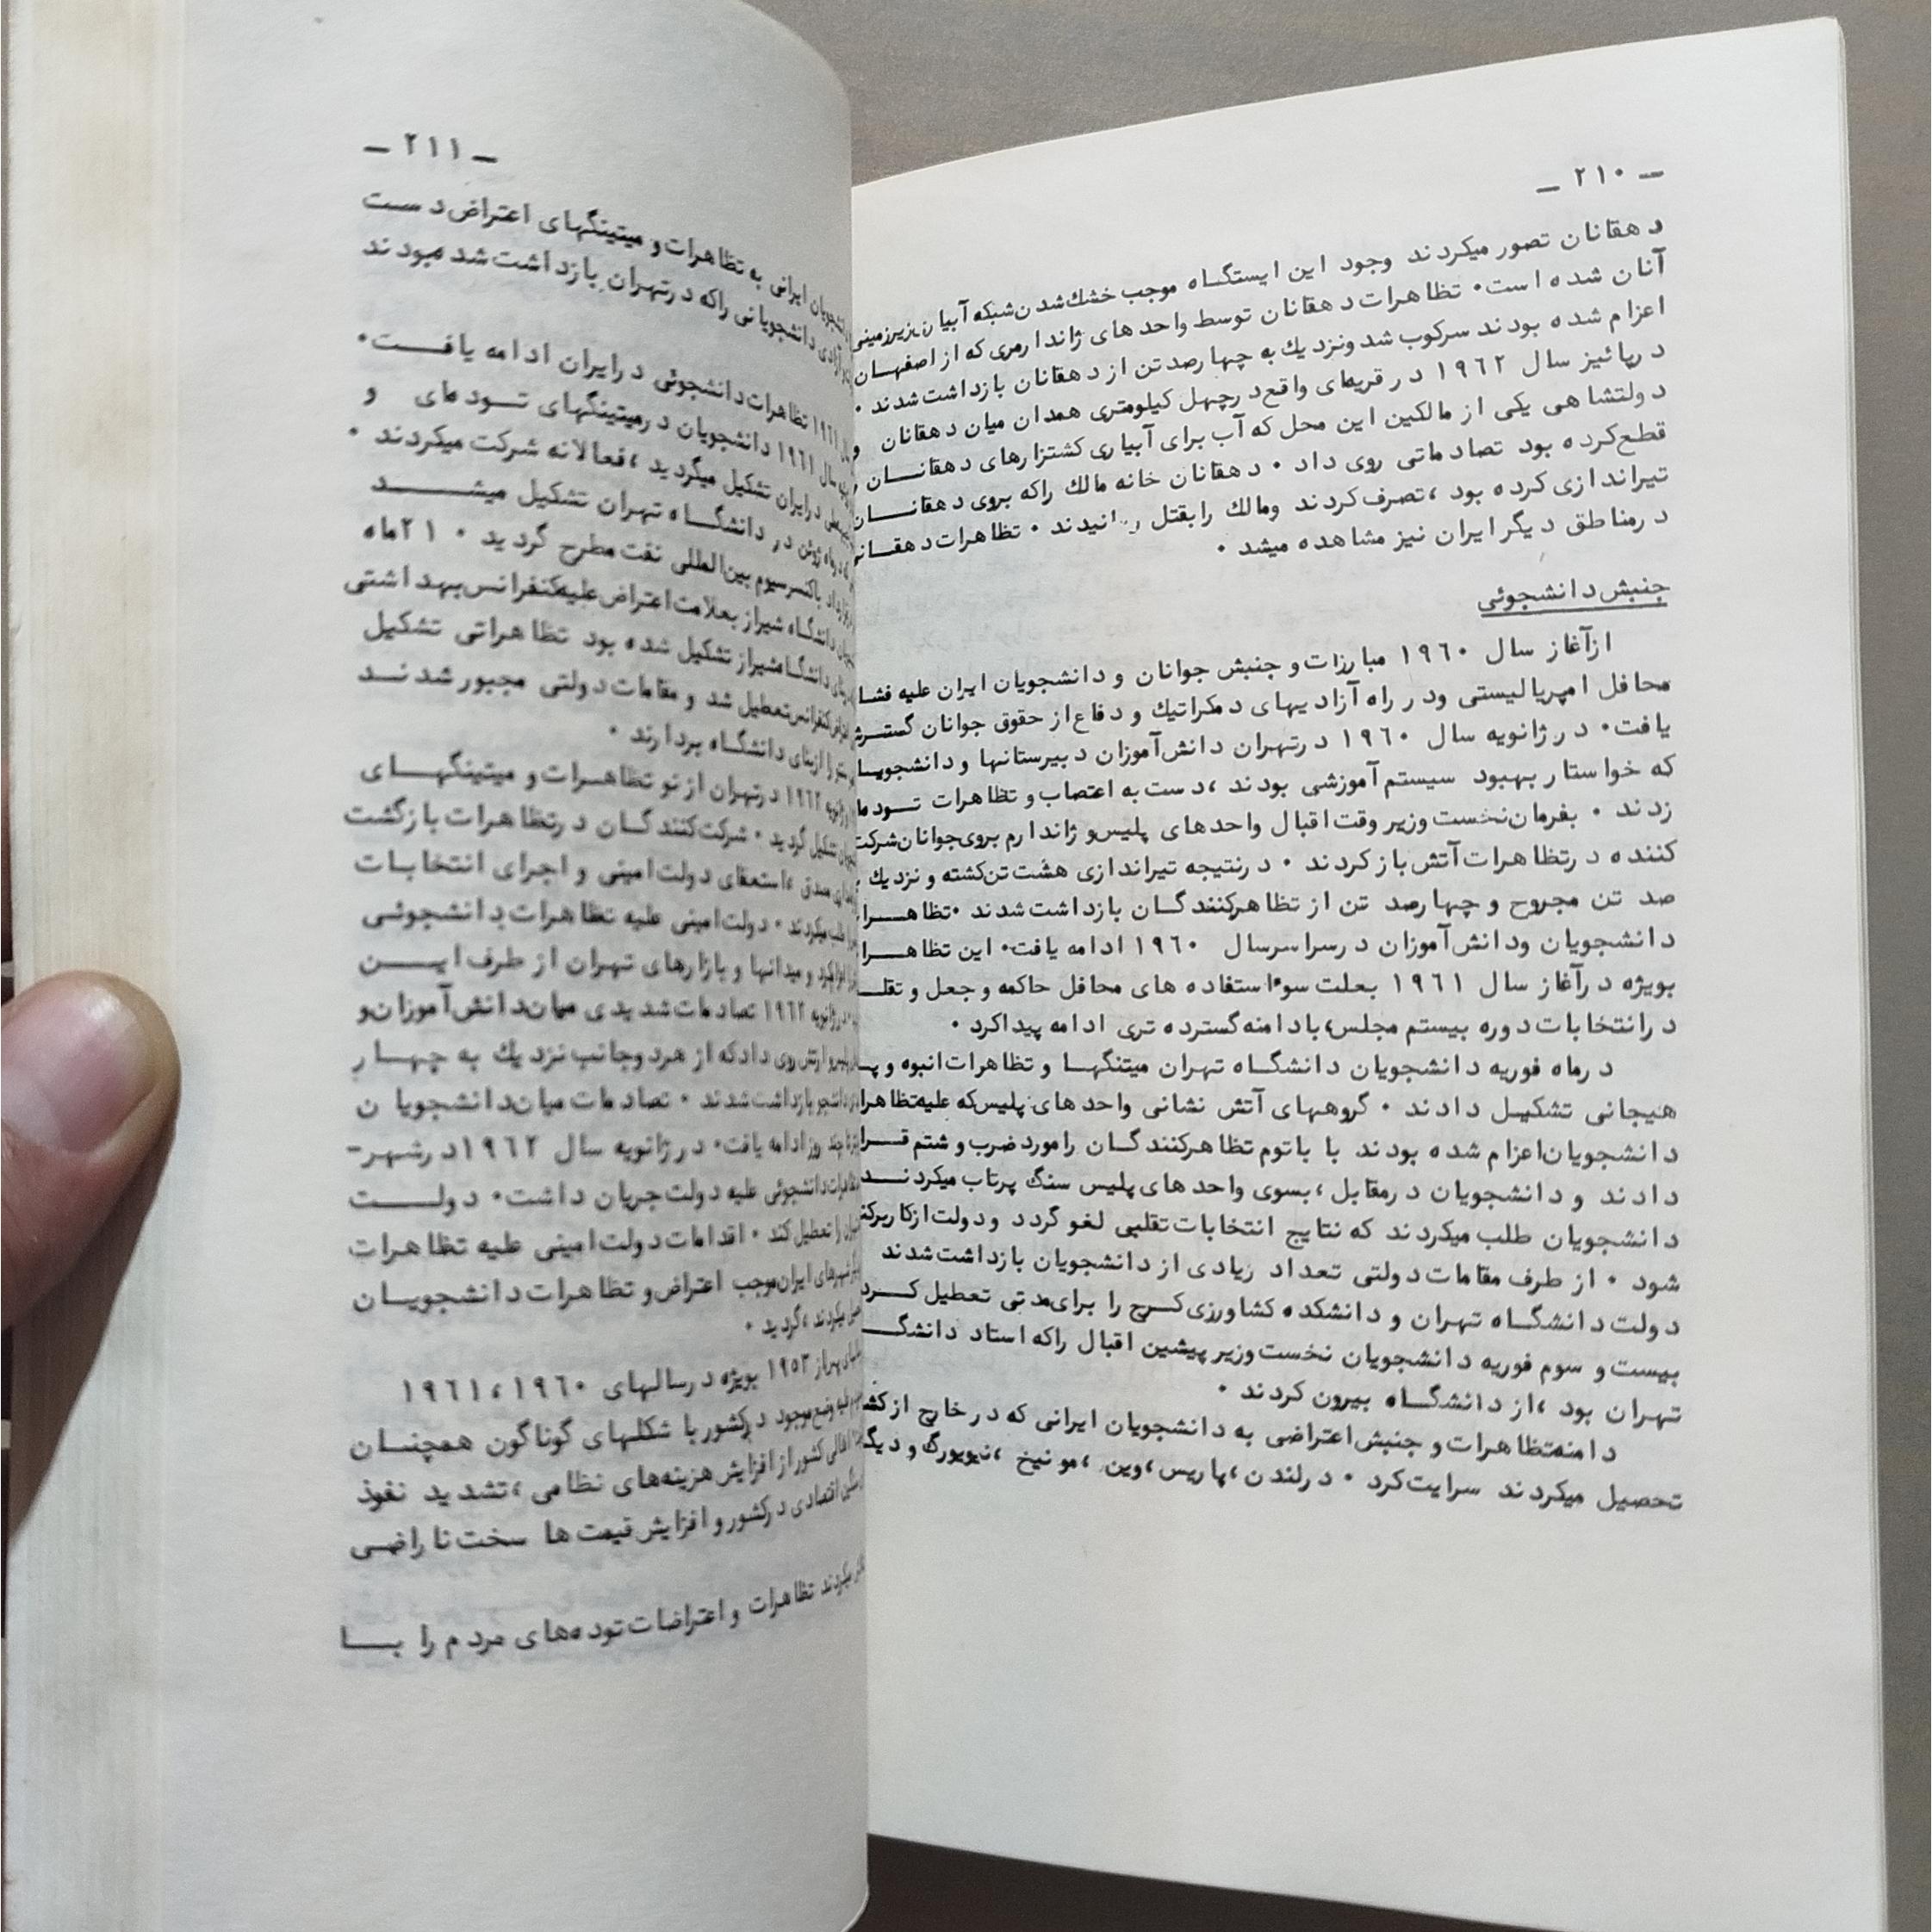 — ٢١٠ —
دهقانان تصور میکردند وجود این ایستگاه موجب خشك‌شدن‌شبکه آبیا ن‌زیرزمینی
آنان شده است۰ تظاهرات دهقانان توسط واحد های ژاندارمری که از اصفهان
اعزام شده بودند سرکوب شد ونزدیك به چهارصد تن از دهقانان بازداشت شدند ۰
درپائیز سال ١٩٦٢ در قریه‌ای واقع درچهل کیلومتری همدان میان دهقانان و
دولتشاهی یکی از مالکین این محل که آب برای آبیاری کشتزارهای دهقانان
قطع‌کرده بود تصادماتی روی داد ۰ دهقانان خانه مالك راکه بروی دهقانان
تیراندازی کرده بود ،تصرف کردند ومالك رابقتل رسانیدند ۰ تظاهرات دهقانی
درمناطق دیگر ایران نیز مشاهده میشد ۰
جنبش دانشجوئی
ازآغاز سال ١٩٦٠ مبارزات و جنبش جوانان و دانشجویان ایران علیه
محافل امپریالیستی ودر راه آزادیهای دمکراتیك و دفاع از حقوق جوانان گسترش
یافت۰ در ژانویه سال ١٩٦٠ درتهران دانش‌آموزان دبیرستانها و
که خواستار بهبود سیستم آموزشی بودند ،دست به اعتصاب و تظاهرات
زدند ۰ بفرمان‌نخست وزیر وقت اقبال واحدهای پلیس‌و ژاندارم بروی‌جوانان‌شرکت
کننده درتظاهرات آتش باز کردند ۰ درنتیجه تیراندازی هشت تن‌کشته و نزدیك
صد تن مجروح و چهارصد تن از تظاهرکنندگان بازداشت شدند ۰
دانشجویان ودانش‌آموزان درسراسرسال ١٩٦٠ ادامه یافت۰ این
بویژه درآغاز سال ١٩٦١ بعلت سوءاستفاده های محافل حاکمه و جعل و
درانتخابات دوره بیستم مجلس،بادامنه گسترده تری ادامه پیداکرد ۰
درماه فوریه دانشجویان دانشگاه تهران میتنگها و تظاهرات انبوه و
هیجانی تشکیل دادند ۰ گروههای آتش نشانی واحد های پلیس‌که علیه
دانشجویان‌اعزام شده بودند با باتوم تظاهرکنندگان رامورد ضرب و شتم
دادند و دانشجویان درمقابل ،بسوی واحد های پلیس سنگ پرتاب میکردند
دانشجویان طلب میکردند که نتایج انتخابات تقلبی لغو گردد ودولت ازکار
شود ۰ از طرف مقامات دولتی تعداد زیادی از دانشجویان بازداشت شدند
دولت دانشگاه تهران و دانشکده کشاورزی کرج را برای‌مدتی تعطیل کرد
بیست و سوم فوریه دانشجویان نخست وزیر پیشین اقبال راکه استاد
تهران بود ،از دانشگاه بیرون کردند ۰
دامنه‌تظاهرات و جنبش اعتراضی به دانشجویان ایرانی که درخارج از
تحصیل میکردند سرایت کرد ۰ درلندن ،پاریس ،وین ،مونیخ ،نیویورگ و
— ٢١١ —
ایرانی به تظاهرات و میتینگهای اعتراض دست
آزادی دانشجویانی راکه درتهران بازداشت شد مبودند
١٩٦١ تظاهرات دانشجوئی درایران ادامه یافت۰
سال ١٩٦١ دانشجویان درمیتینگهای تودمای و
درایران تشکیل میگردید ،فعالانه شرکت میکردند ۰
ژوئن در دانشگاه تهران تشکیل میشد
باکنسرسیوم بین‌المللی نفت مطرح گردید ۰ ٢١ماه
دانشگاه شیراز بعلامت اعتراض علیه‌کنفرانس‌بهداشتی
دانشگاه‌شیراز تشکیل شده بود تظاهراتی تشکیل
کنفرانس‌تعطیل شد و مقامات دولتی مجبور شدند
را ازبنای دانشگاه بردارند ۰
١٩٦٢ درتهران از نو تظاهرات و میتینگهای
تشکیل گردید ۰ شرکت‌کنندگان درتظاهرات بازگشت
مصدق ،استعفای دولت امینی و اجرای انتخابات
طلب میکردند ۰ دولت امینی علیه تظاهرات دانشجوئی
و میدانها و بازارهای تهران از طرف این
ژانویه ١٩٦٢ تصادمات شدیدی میان‌دانش‌آموزان‌و
ارتش روی دادکه از هردوجانب نزدیك به چهار
دانشجو بازداشت شدند ۰ تصادمات میان‌دانشجویان
چند روز ادامه یافت۰ در ژانویه سال ١٩٦٢ درشهر-
دانشجوئی علیه دولت جریان داشت۰ دولت
را تعطیل کند ۰ اقدامات دولت امینی علیه تظاهرات
شهرهای ایران‌موجب اعتراض‌و تظاهرات دانشجویان
میکردند ،گردید ۰
١٩٥٣ بویژه درسالهای ١٩٦٠ ،١٩٦١
وضع‌موجود درکشور با شکلهای گوناگون همچنان
کشور از افزایش هزینه‌های نظامی ،تشدید نفوذ
اقتصادی درکشور و افزایش قیمت ها سخت ناراضی
میکردند تظاهرات و اعتراضات توده‌های مردم را با